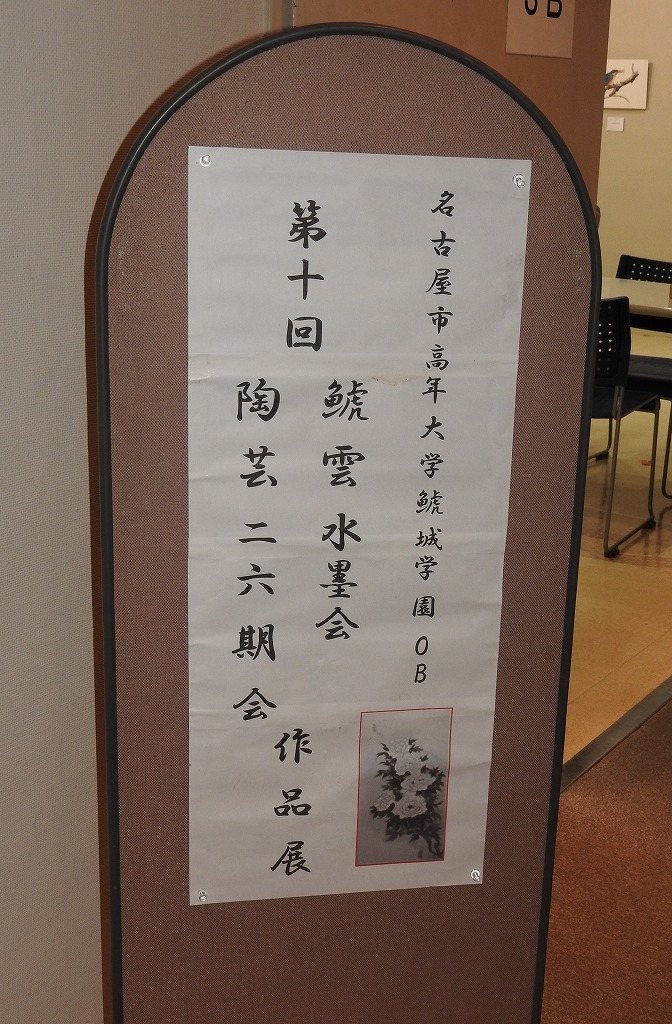 名古屋市高年大学鯱城学園OB
第十回
鯱雲水墨会
陶芸二六期会
作品展